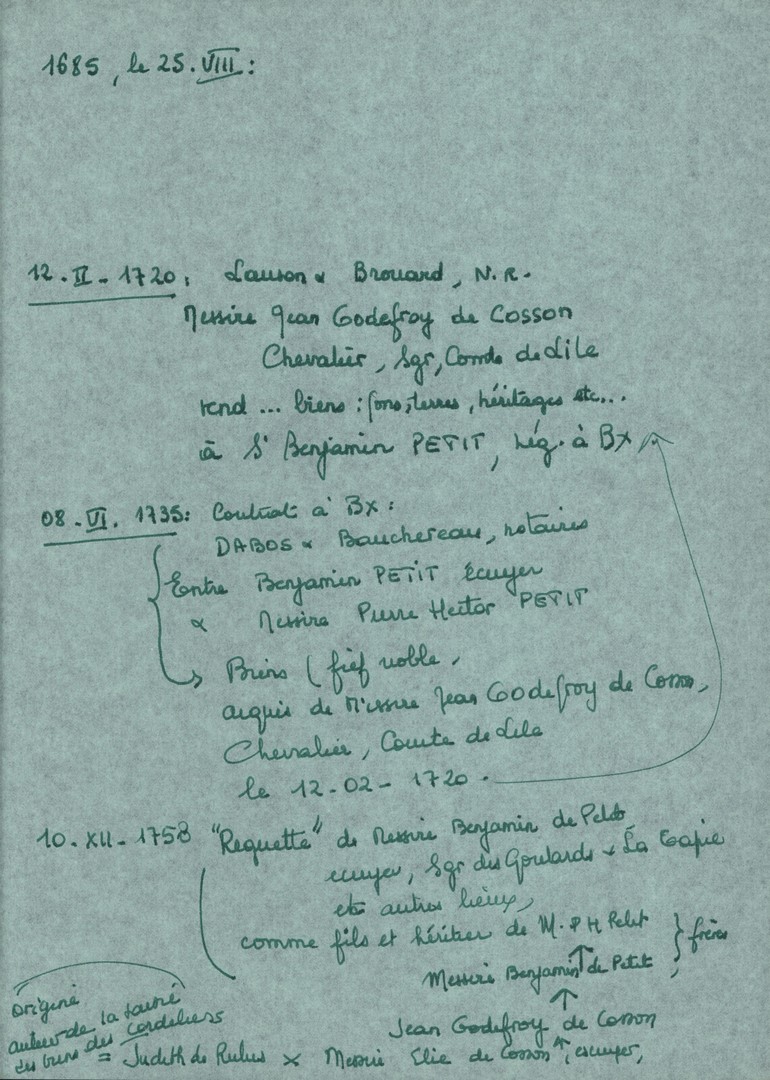 1685, le 25.VIII:
12.II-1720: Lauson & Brouard, N.R.
Messire Jean Godefroy de Cosson
Chevalier, Sgr, Comte de Lile
vend ... biens: fons, terres, héritages etc...
à Sr Benjamin PETIT, nég. à Bx
08.VI.1735: Contrat à Bx:
DABOS & Bauchereau, notaires
Entre Benjamin PETIT écuyer
& Messire Pierre Hector PETIT
Biens (fief noble,
acquis de Messire Jean Godefroy de Cosson,
Chevalier, Comte de Lile
le 12-02-1720.
10.XII-1758 "Requette" de Messire Benjamin de Petit
ecuyer, Sgr des Goulards & La Tapie
et autres lieux,
comme fils et héritier de M. P H Petit
Messire Benjamin de Petit } frères
Jean Godefroy de Cosson
origine
auteur de la
des biens des Cordeliers
= Judith de × Messire Elie de Cosson, escuyer,